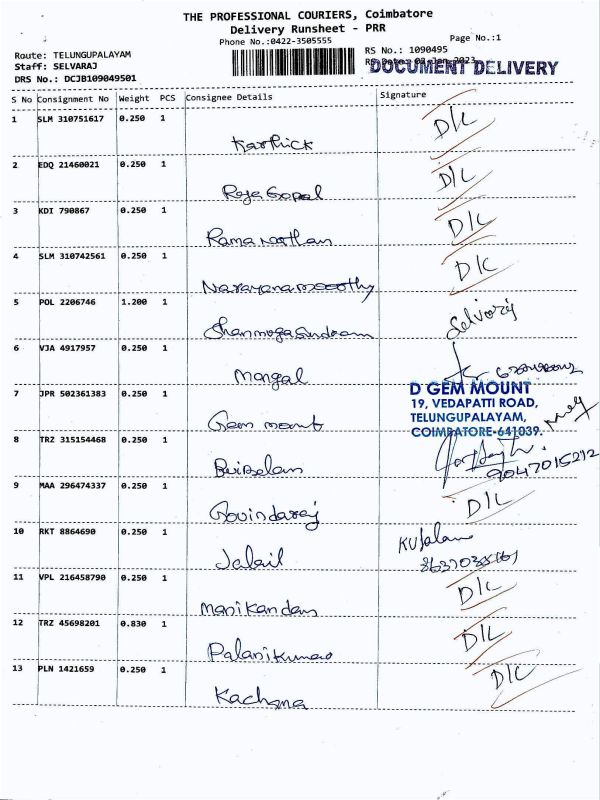 THE PROFESSIONAL COURIERS, Coimbatore
Delivery Runsheet - PRR
Phone No.:0422-3505555
Page No.:1
Route: TELUNGUPALAYAM
RS No.: 1090495
Staff: SELVARAJ
RS Date: 02 Jan 2023
DOCUMENT DELIVERY
DRS No.: DCJB109049501
S No Consignment No Weight PCS Consignee Details Signature
1 SLM 310751617 0.250 1 D/C
Karthick
2 EDQ 21460021 0.250 1 D/C
Raja Gopal
3 KDI 790867 0.250 1 D/C
Rama nathan
4 SLM 310742561 0.250 1 D/C
Narayanamoorthy
5 POL 2206746 1.200 1 Selvaraj
Shanmugasundram
6 VJA 4917957 0.250 1
Mangal
7 JPR 502361383 0.250 1
D GEM MOUNT
19, VEDAPATTI ROAD,
TELUNGUPALAYAM,
COIMBATORE-641039.
Gem mount
8 TRZ 315154468 0.250 1
9047015212
9 MAA 296474337 0.250 1 D/C
Govindaraj
10 RKT 8864690 0.250 1
Jalail
11 VPL 216458790 0.250 1 D/C
Manikandan
12 TRZ 45698201 0.830 1 D/C
Palanikumar
13 PLN 1421659 0.250 1 D/C
Kachana